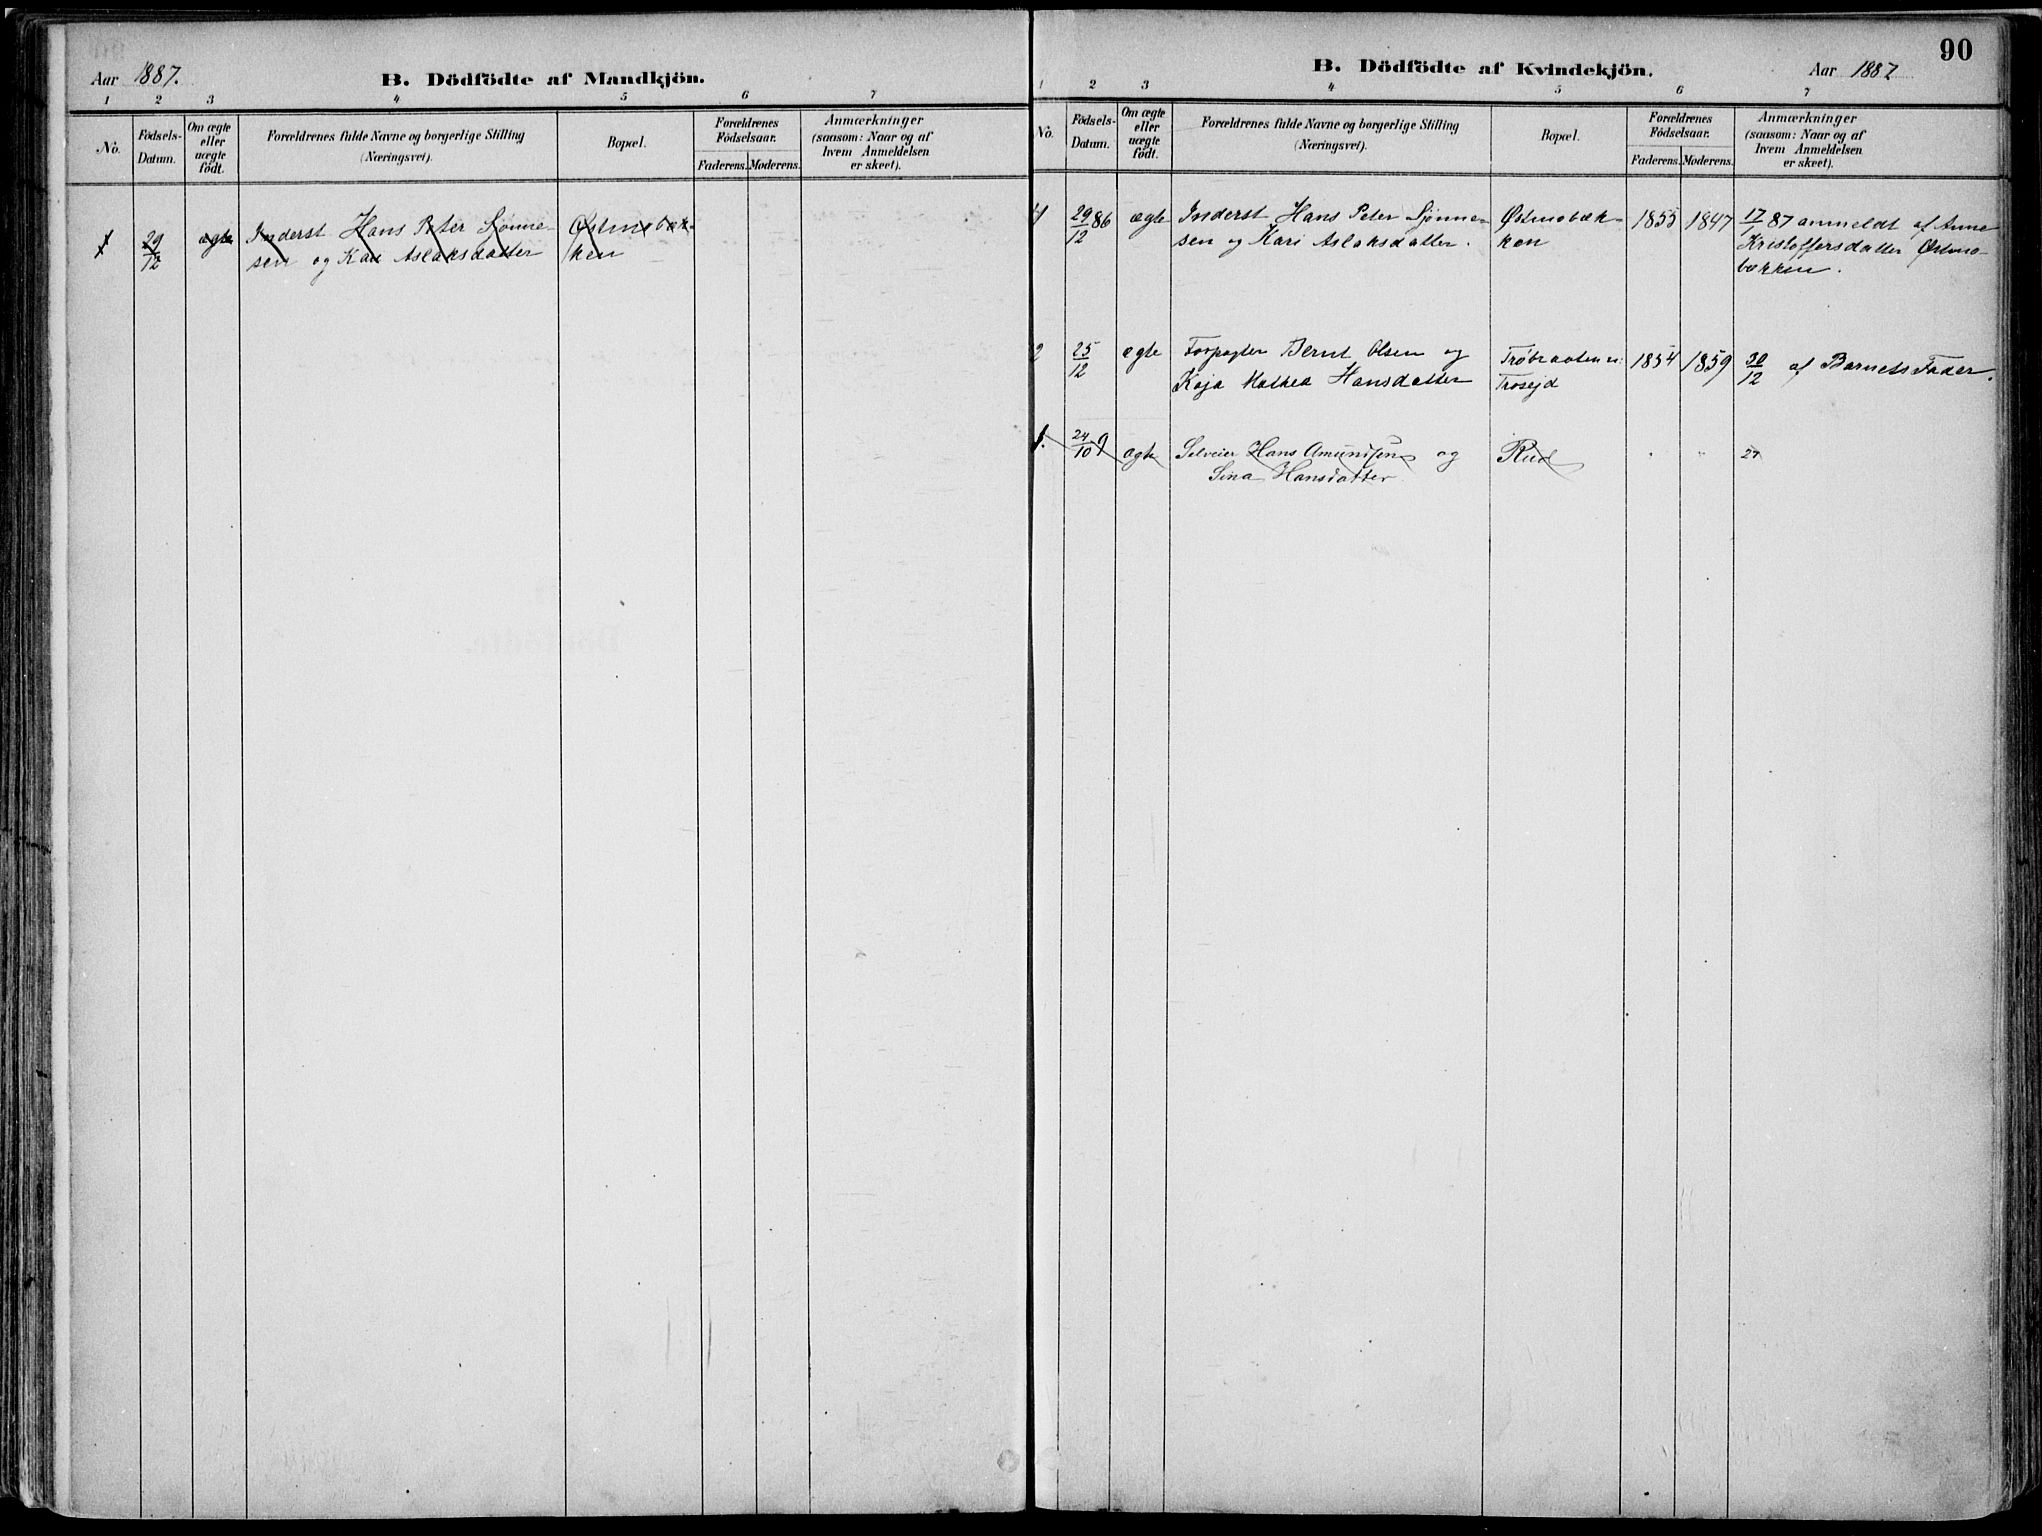 Aar 1887.
B. Dödfödte af Mandkjön.
1 2 3 4 5 6 7
No.
Födsels-
Datum.
Om ægte
eller
uægte
födt.
Forældrenes fulde Navne og borgerlige Stilling
(Næringsvei).
Bopæl.
Forældrenes
Födselsaar.
Faderens. Moderens.
Anmærkninger
(saasom: Naar og af
hvem Anmeldelsen
er skeet).
1 29/12 ægte Inderst Hans Peter Sønne- Østmobæk-
sen og Kari Aslaksdatter ken
90
B. Dödfödte af Kvindekjön.
Aar 1887
1 2 3 4 5 6 7
No.
Födsels-
Datum.
Om ægte
eller
uægte
födt.
Forældrenes fulde Navne og borgerlige Stilling
(Næringsvei).
Bopæl.
Forældrenes
Födselsaar.
Faderens. Moderens.
Anmærkninger
(saasom: Naar og af
hvem Anmeldelsen
er skeet).
1 29/12 86 ægte Inderst Hans Peter Sjønne- Østmobæk- 1855 1847 17/1 87 anmeldt af Anne
sen og Kari Aslaksdatter. ken Kristoffersdatter Østmo-
bækken.
2 25/12 ægte Forpagter Bernt Olsen og 1854 1859 30/12 af Barnets Fader.
Kaja Mathea Hansdatter
1. 24/10 ægte Selveier Hans Amundsen og Rud " " 27
Sina Hansdatter